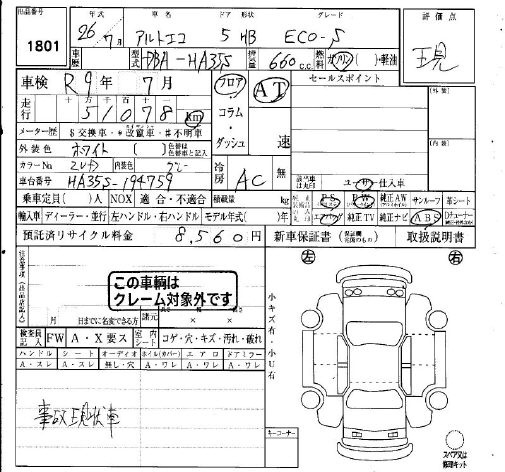 出品番号 年式 車名 ドア 形状 グレード 評価点
1801 26年 7月 アルトエコ 5 HB ECO-S 現
車歴 型式 DBA-HA35S 排気量 660 c.c. 燃料 ガソリン ( )・軽油
車検 R9年 7月 フロア・コラム・ダッシュ AT 速 セールスポイント (外装)
走行 十万 千百十 51078 km
メーター歴 $交換車・*改竄車・#不明車 (内装)
外装色 ホワイト ( ) 色替は色替車と記入
カラーNo ZLY 内装色 グレー 冷房 AC 無 該当車は丸印 ユーザー仕入車
車台番号 HA35S-194759
乗車定員( )人 NOX 適合・不適合 積載量 kg PS PW 純正AW サンルーフ 革シート
輸入車 ディーラー・並行 左ハンドル・右ハンドル モデル年式( )年 エアバッグ 純正TV 純正ナビ ABS
預託済リサイクル料金 8,560円 新車保証書 取扱説明書
注意事項
この車輌は
クレーム対象外です
左 右
小キズ有・小U有
月 日までに名変できる方 諸元 × ×
検査員記入 FW A・X要ス 室内シート コゲ・穴・キズ・汚れ・破れ
ハンドル シート オーディオ ホイル(カバー) エアロ ドアミラー
A・スレ A・スレ 無し・穴 A・ワレ A・ワレ A・ワレ
事故現状車
キーコーナー
スペア又は
修理キット